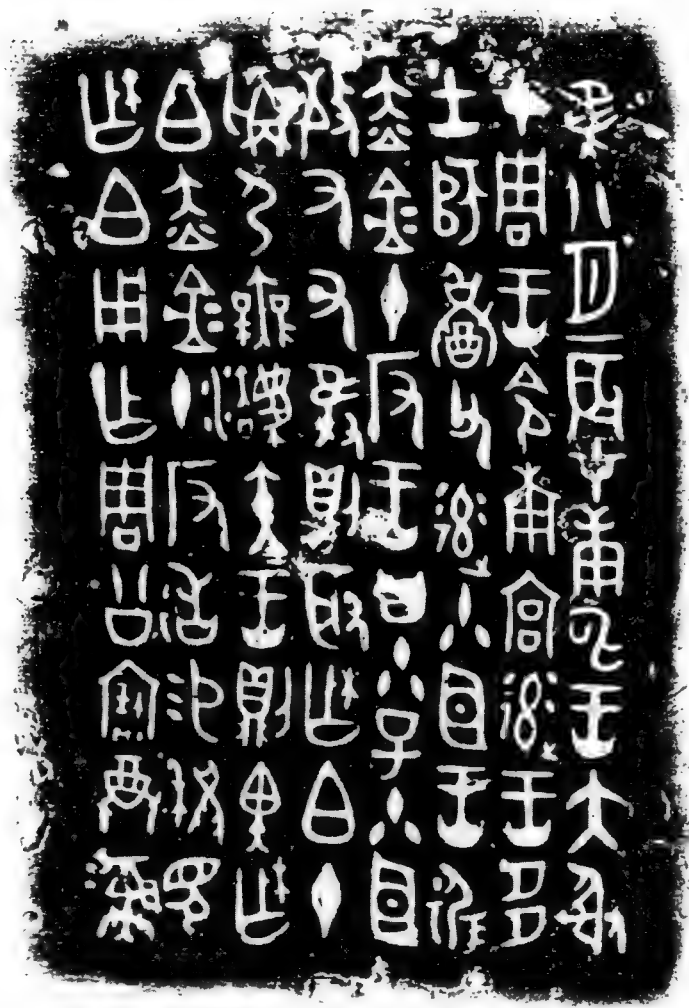 隹八月辰才庚申王大射
才周王令南宮率王多
士師父率小臣王遟
赤金十反王曰小子小臣
敬又又獲則取柞白十
爯弓無廢矢王則畀柞
白赤金十反易祝見
柞白用乍周公寶尊彝